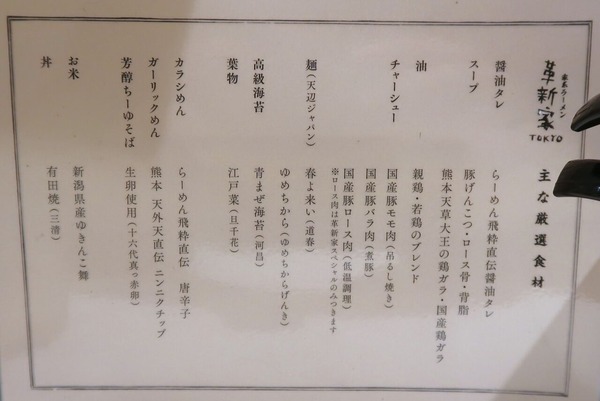 家系ラーメン
革新家
TOKYO
主な厳選食材
醤油タレ らーめん飛粋直伝醤油タレ
スープ 豚げんこつ・ロース骨・背脂
熊本天草大王の鶏ガラ・国産鶏ガラ
油 親鶏・若鶏のブレンド
チャーシュー 国産豚モモ肉(吊るし焼き)
国産豚バラ肉(煮豚)
国産豚ロース肉(低温調理)
※ロース肉は革新家スペシャルのみつきます
麺(天辺ジャパン) 春よ来い(道春)
ゆめちから(ゆめちからげんき)
高級海苔 青まぜ海苔(河昌)
葉物 江戸菜(旦千花)
カラシめん らーめん飛粋直伝 唐辛子
ガーリックめん 熊本 天外天直伝 ニンニクチップ
芳醇ちーゆそば 生卵使用(十六代真っ赤卵)
お米 新潟県産ゆきんこ舞
丼 有田焼(三清)